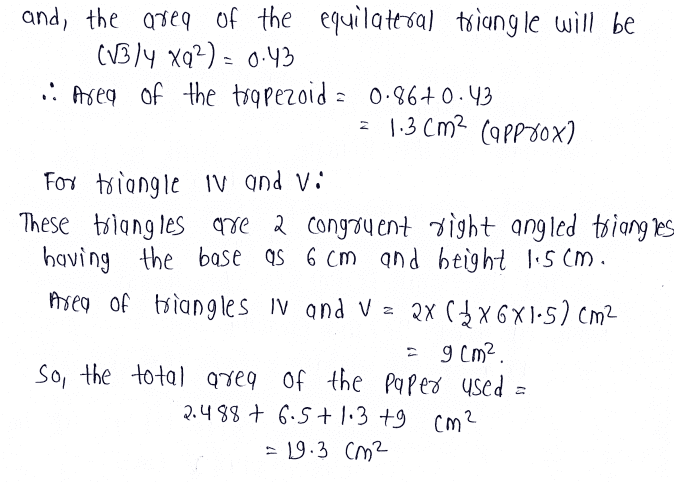 and, the area of the equilateral triangle will be
(√3/4 × a²) = 0.43
∴ Area of the trapezoid = 0.86 + 0.43
= 1.3 cm² (approx)
For triangle IV and V:
These triangles are 2 congruent right angled triangles
having the base as 6 cm and height 1.5 cm.
Area of triangles IV and V = 2 × (½ × 6 × 1.5) cm²
= 9 cm².
So, the total area of the paper used =
2.488 + 6.5 + 1.3 + 9 cm²
= 19.3 cm²